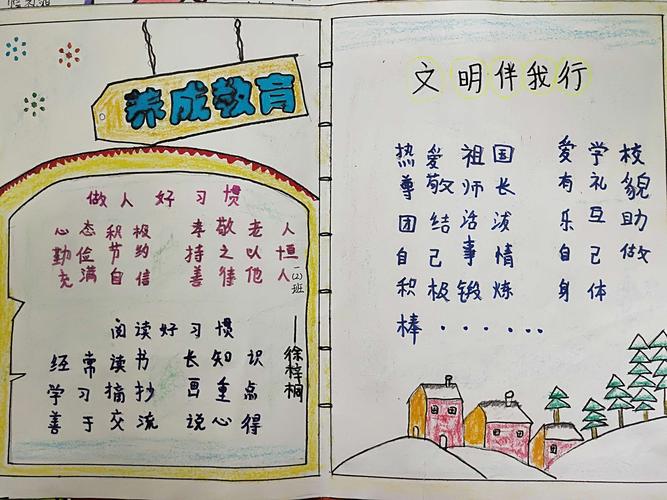 养成教育
做人好习惯
心态积极 孝敬老人
勤俭节约 持之以恒
充满自信 善待他人
阅读好习惯
经常读书 长知识
学习摘抄 画重点
善于交流 说心得
一(2)班——徐梓桐
文明伴我行
热爱祖国 爱学校
尊敬师长 有礼貌
团结活泼 乐互助
自己事情 自己做
积极锻炼 身体
棒······